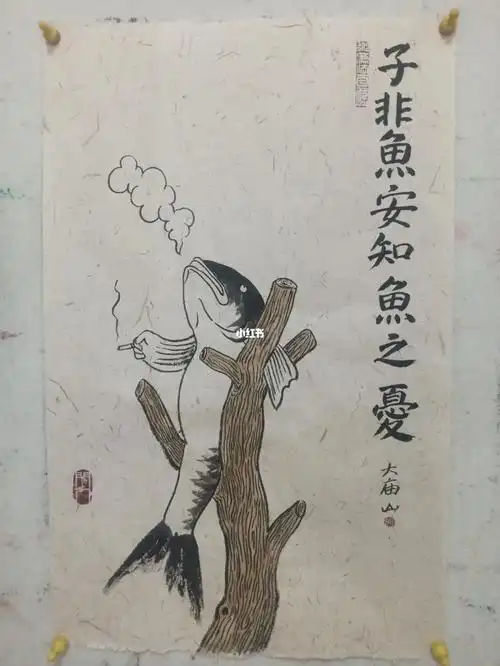 子非魚安知魚之憂
大庙山
小红书